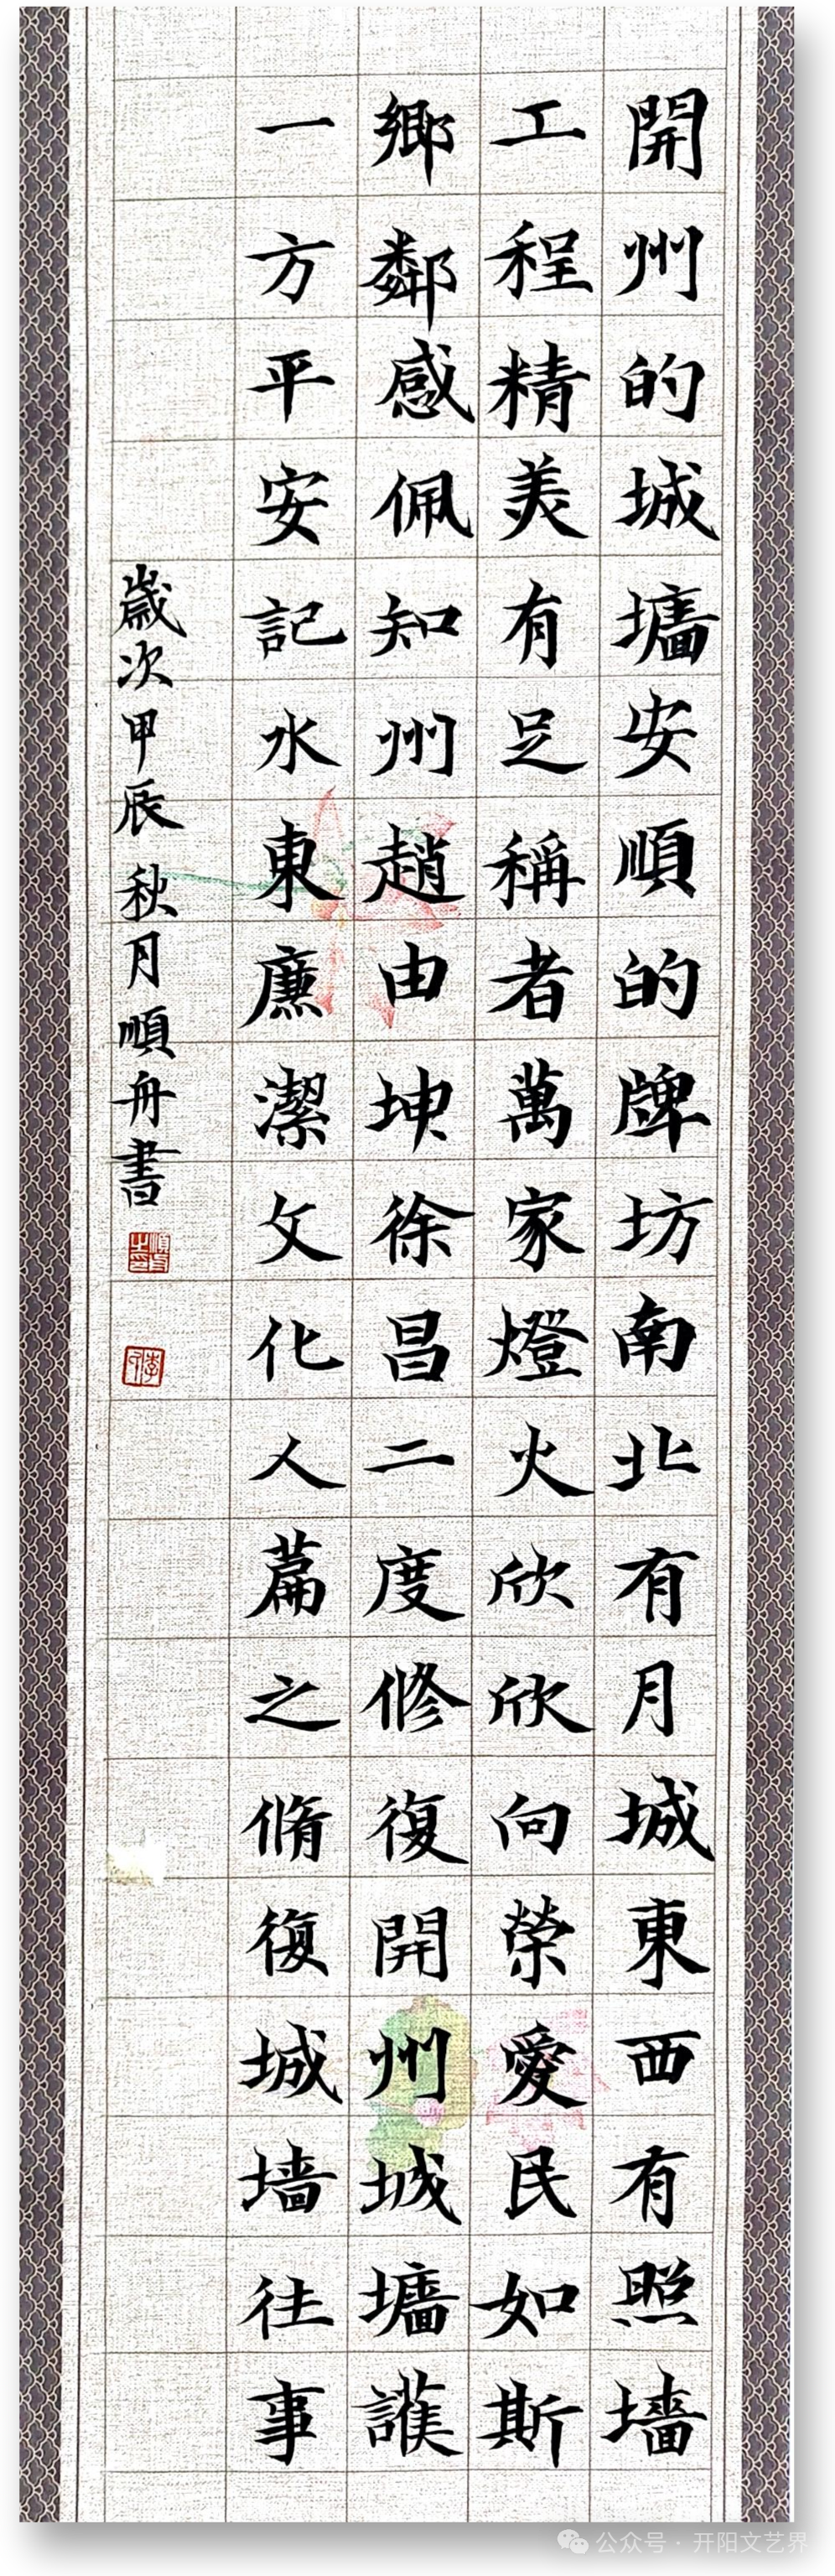 開州的城墻安順的牌坊南北有月城東西有照墻
工程精美有足稱者萬家燈火欣欣向榮愛民如斯
鄉鄰感佩知州趙由坤徐昌二度修復開州城墻護
一方平安記水東廉潔文化人篇之脩復城墙往事
歲次甲辰秋月順舟書
公众号·开阳文艺界